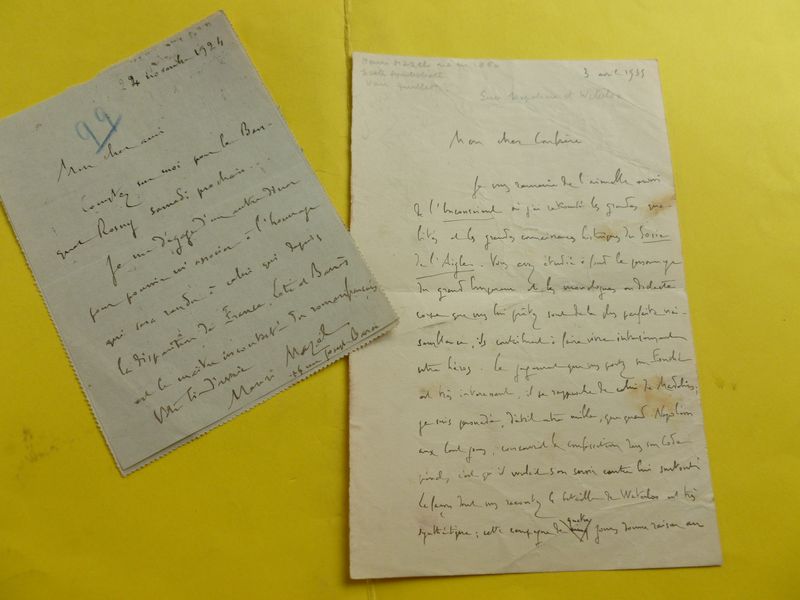 24 novembre 1924
99
Mon cher ami
Comptez sur moi pour le Ban-
quet Rosny samedi prochain...
Je me dégage d'un autre diner
pour pouvoir m'associer à l'hommage
qui sera rendu à celui qui depuis
la disparition de France, Loti et Barrès
est le maître incontesté du roman français
Henri Mazel
Sur Napoléon et Waterloo
3 avril 1935
Mon cher Confrère
Je vous remercie de l'aimable envoi
de l'Inconscient où j'ai retrouvé les grandes qua-
lités et les grandes connaissances historiques du Sosie
de l'Aigle. Vous avez étudié à fond le personnage
du grand Empereur et les monologues ou
corse que vous lui prêtez sont de la plus parfaite vrai-
semblance, ils contribuent à faire vivre intensément
votre héros. Le jugement que vous portez sur Fouché
est très intéressant, il se rapproche de celui de Madelin;
je suis persuadé, d'ailleurs que quand Napoléon
aux Cent jours,
c'est qu'il voulait s'en servir contre lui
La façon dont vous racontez la bataille de Waterloo est très
synthétique; cette campagne de quatre jours donne raison au